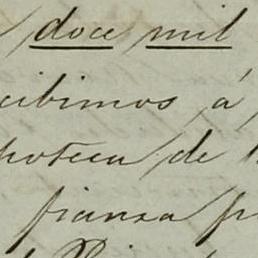 doce mil
cibimos á
poteca de
fianza p